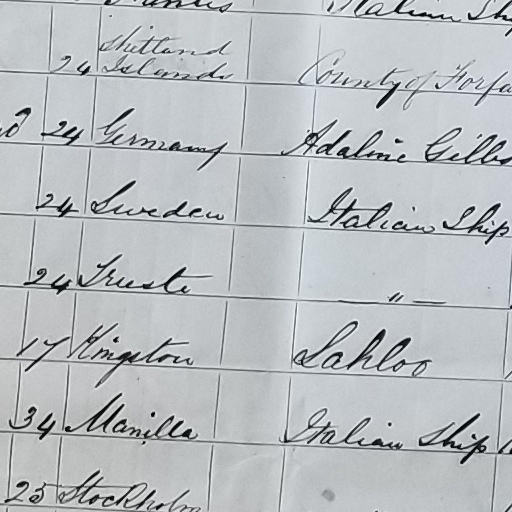 Italian Ship
Shettand
24 Islands County of Forfa
24 Germany Adaline Gibbs
24 Sweden Italian Ship
24 Trieste — " —
17 Kingston Lahloo
34 Manilla Italian Ship
25 Stockholm